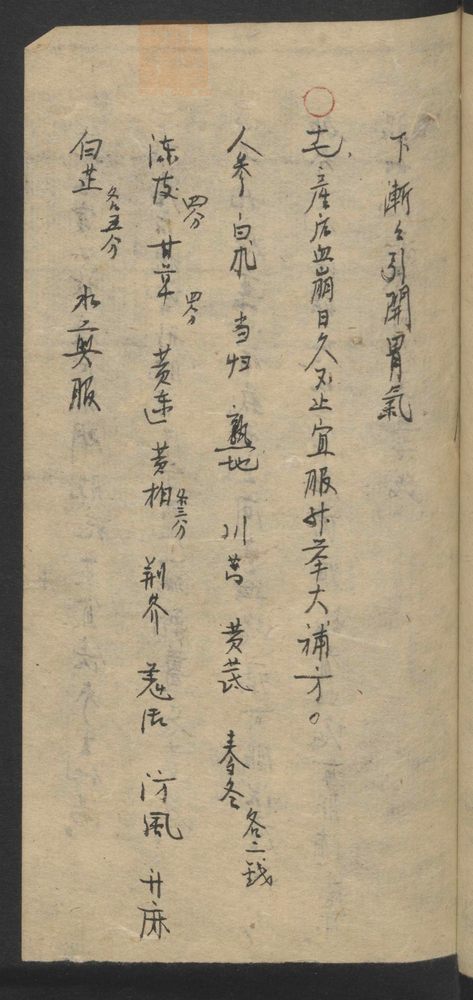 下漸々引開胃氣
七、産后血崩日久不止宜服升举大補方。
人参 白朮 当归 熟地 川芎 黄芪 春冬各二銭
陳皮四分 甘草四分 黄連 黄柏各三分 荆芥 羌活 防風 升麻
白芷各五分 水煎服